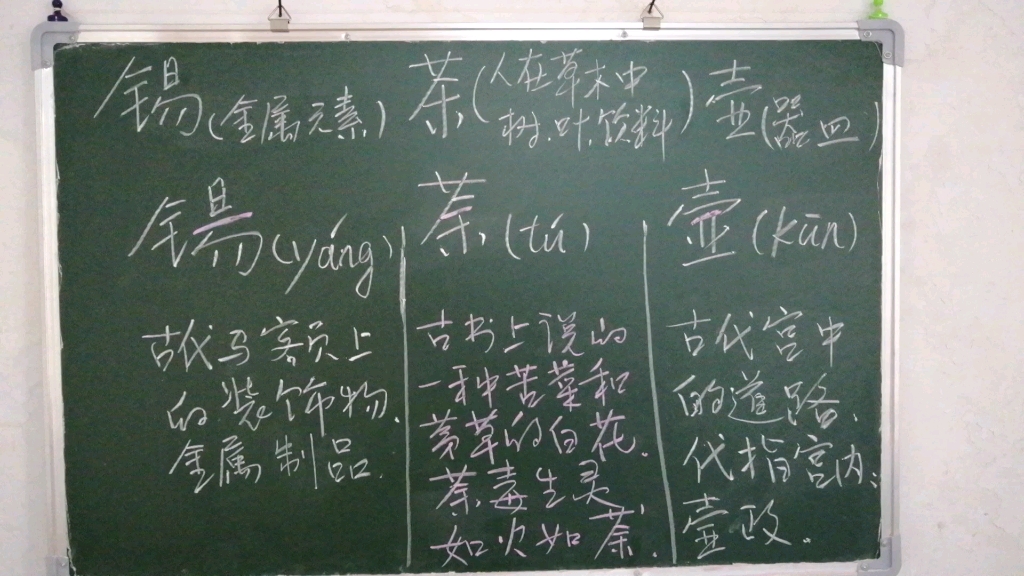 锡(金属元素) 茶(人在草木中
树.叶.饮料) 壶(器皿)
鍚(yáng) 荼(tú) 壸(kūn)
古代马额上
的装饰物.
金属制品.
古书上说的
一种苦菜和
茅草的白花.
荼毒生灵
如火如荼.
古代宫中
的道路.
代指宫内:
壸政.